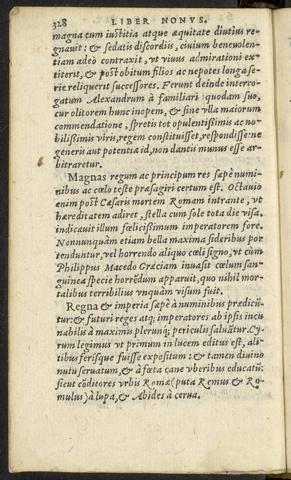 328 LIBER NONVS.
magna cum iustitia atque æquitate diutius re-
gnauit: & sedatis discordijs, ciuium beneuolen-
tiam adeò contraxit, vt viuus admirationi ex-
titerit, & post obitum filios ac nepotes longa se-
rie reliquerit successores. Ferunt deinde interro-
gatum Alexandrum à familiari quodam suo,
cur olitorem hunc inopem, & sine vlla maiorum
commendatione, spretis tot opulentißimis ac no-
bilißimis viris, regem constituisset, respondisse: ne
generis aut potentiæ id, non dantis munus esse ar-
bitraretur.
Magnas regum ac principum res sæpè numi-
nibus ac cœlo teste præsagiri certum est. Octauio
enim post Cæsaris mortem Romam intrante, vt
hæreditatem adiret, stella cum sole tota die visa,
indicauit illum fœlicißimum imperatorem fore.
Nonnunquàm etiam bella maxima sideribus por
tenduntur, vel horrendo aliquo cœli signo, vt cùm
Philippus Macedo Græciam inuasit cœlum san-
guinea specie horrẽdum apparuit, quo nihil mor-
talibus terribilius vnquàm visum fuit.
Regna & imperia sæpè à numinibus prædicũ-
tur: & futuri reges atq; imperatores ab ipsis incu
nabulis à maximis plerunq; periculis saluãtur. Cy
rum legimus vt primùm in lucem editus est, ali-
tibus ferisque fuisse expositum: & tamen diuino
nutu seruatum, & à fœta cane vberibus educatũ:
sicut cõditores vrbis Romæ (puta Remus & Ro-
mulus) à lupa, & Abides à cerua.